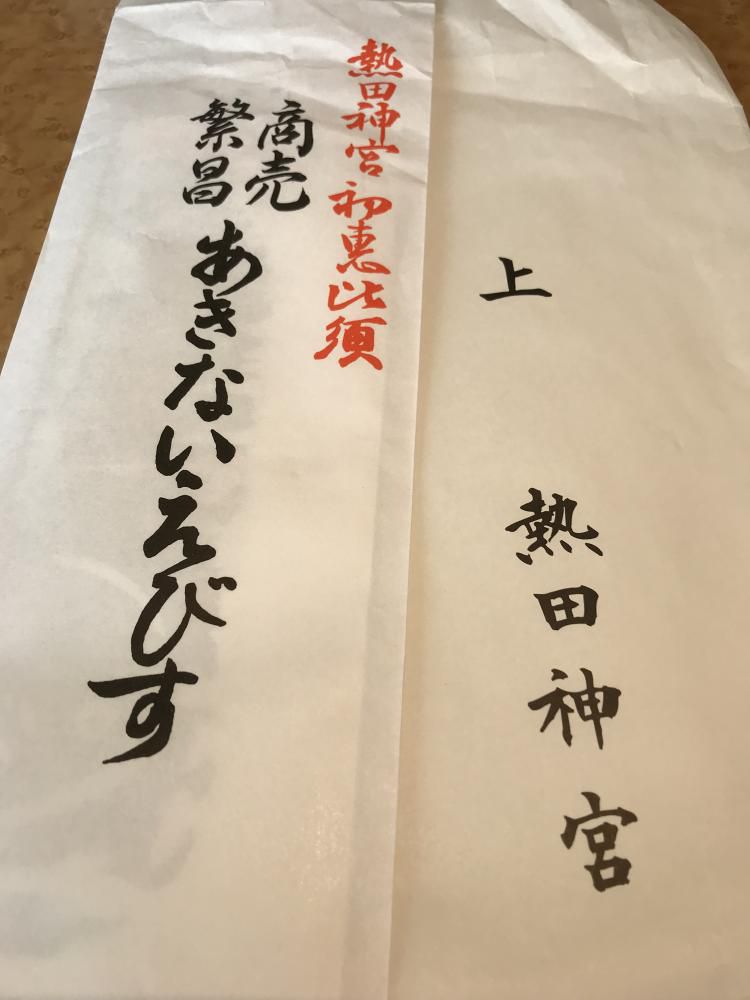 上
熱田神宮
熱田神宮 初恵比須
商売
繁昌
あきないえびす